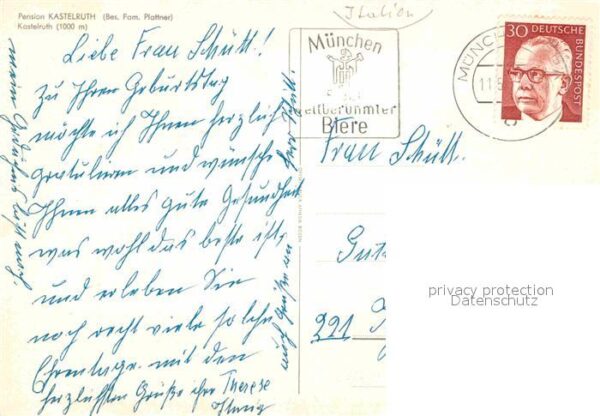 Pension KASTELRUTH (Bes. Fam. Plattner)
Kastelruth (1000 m)
Italien
Liebe Frau Schütt!
Zu Ihrem Geburtstag
möchte ich Ihnen herzlich
gratulieren und wünsche
Ihnen alles gute Gesundheit
was wohl das beste ist,
und erleben Sie
noch recht viele solche
Ehrentage. mit den
herzlichsten Grüße ihre Therese
auch Grüße an Herr Schütt.
mein
München
weltberühmter
Biere
MÜNCHEN
30 DEUTSCHE
BUNDESPOST
Frau Schütt.
221
privacy protection
Datenschutz